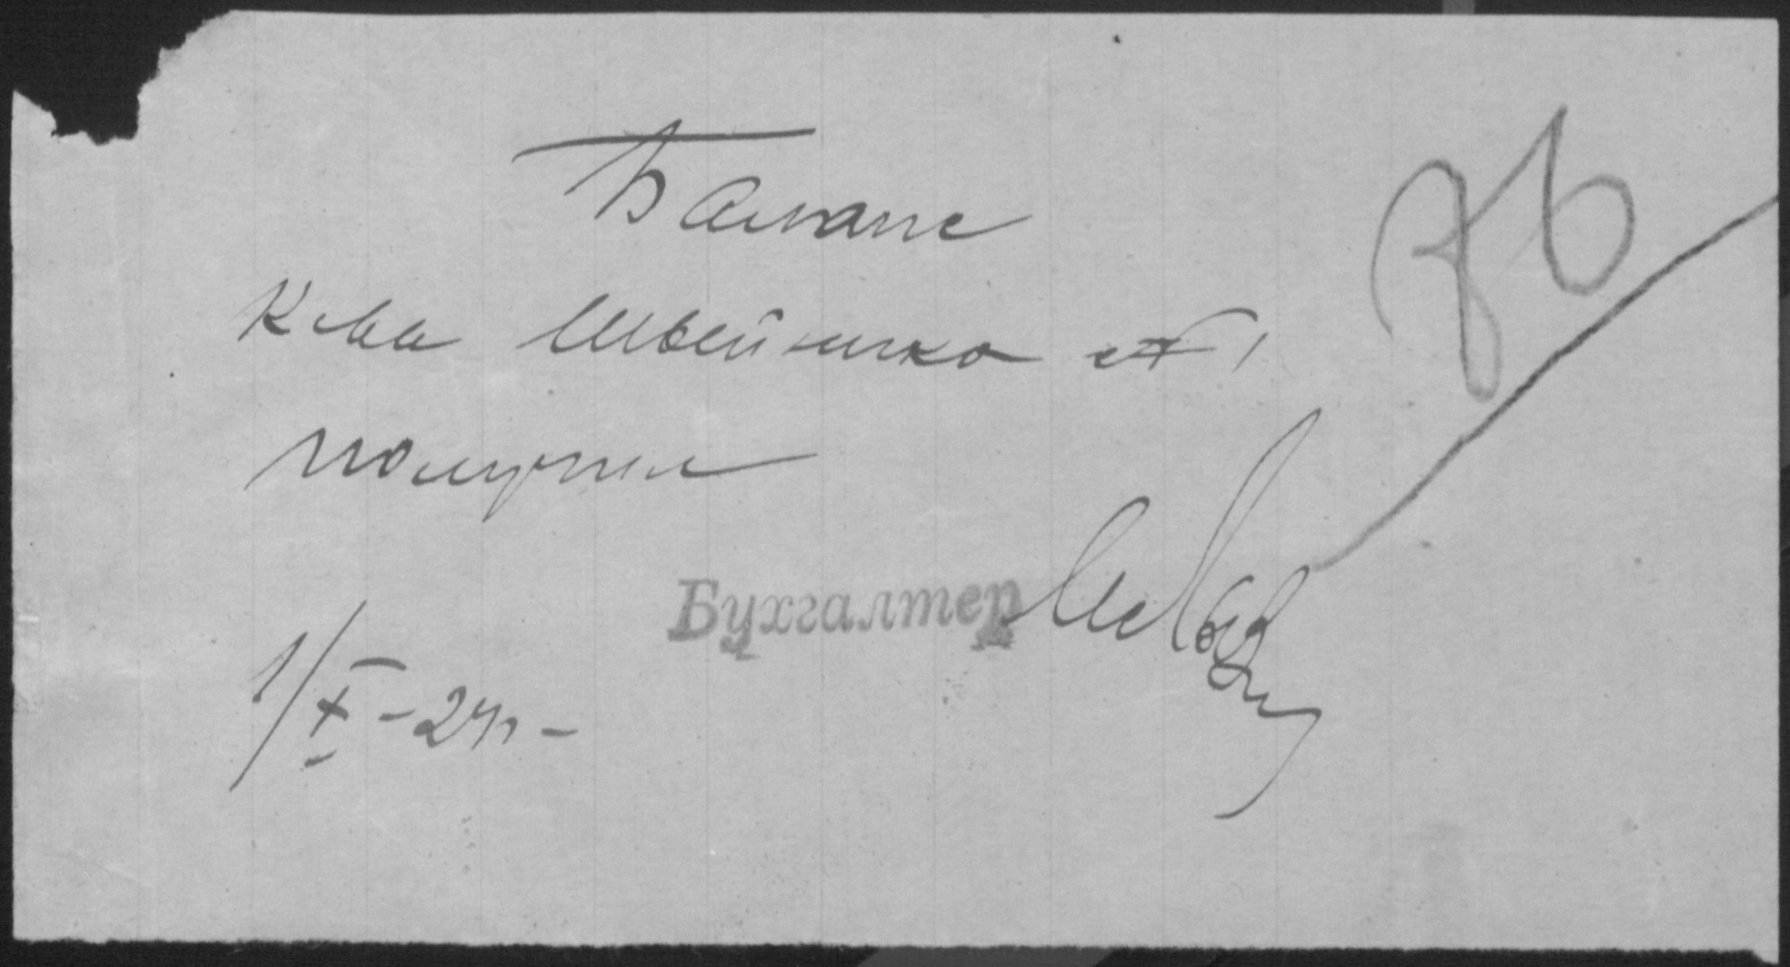 36
Баланс
К-ва Швейника № 1
получил
Бухгалтер
1/X - 24 г -